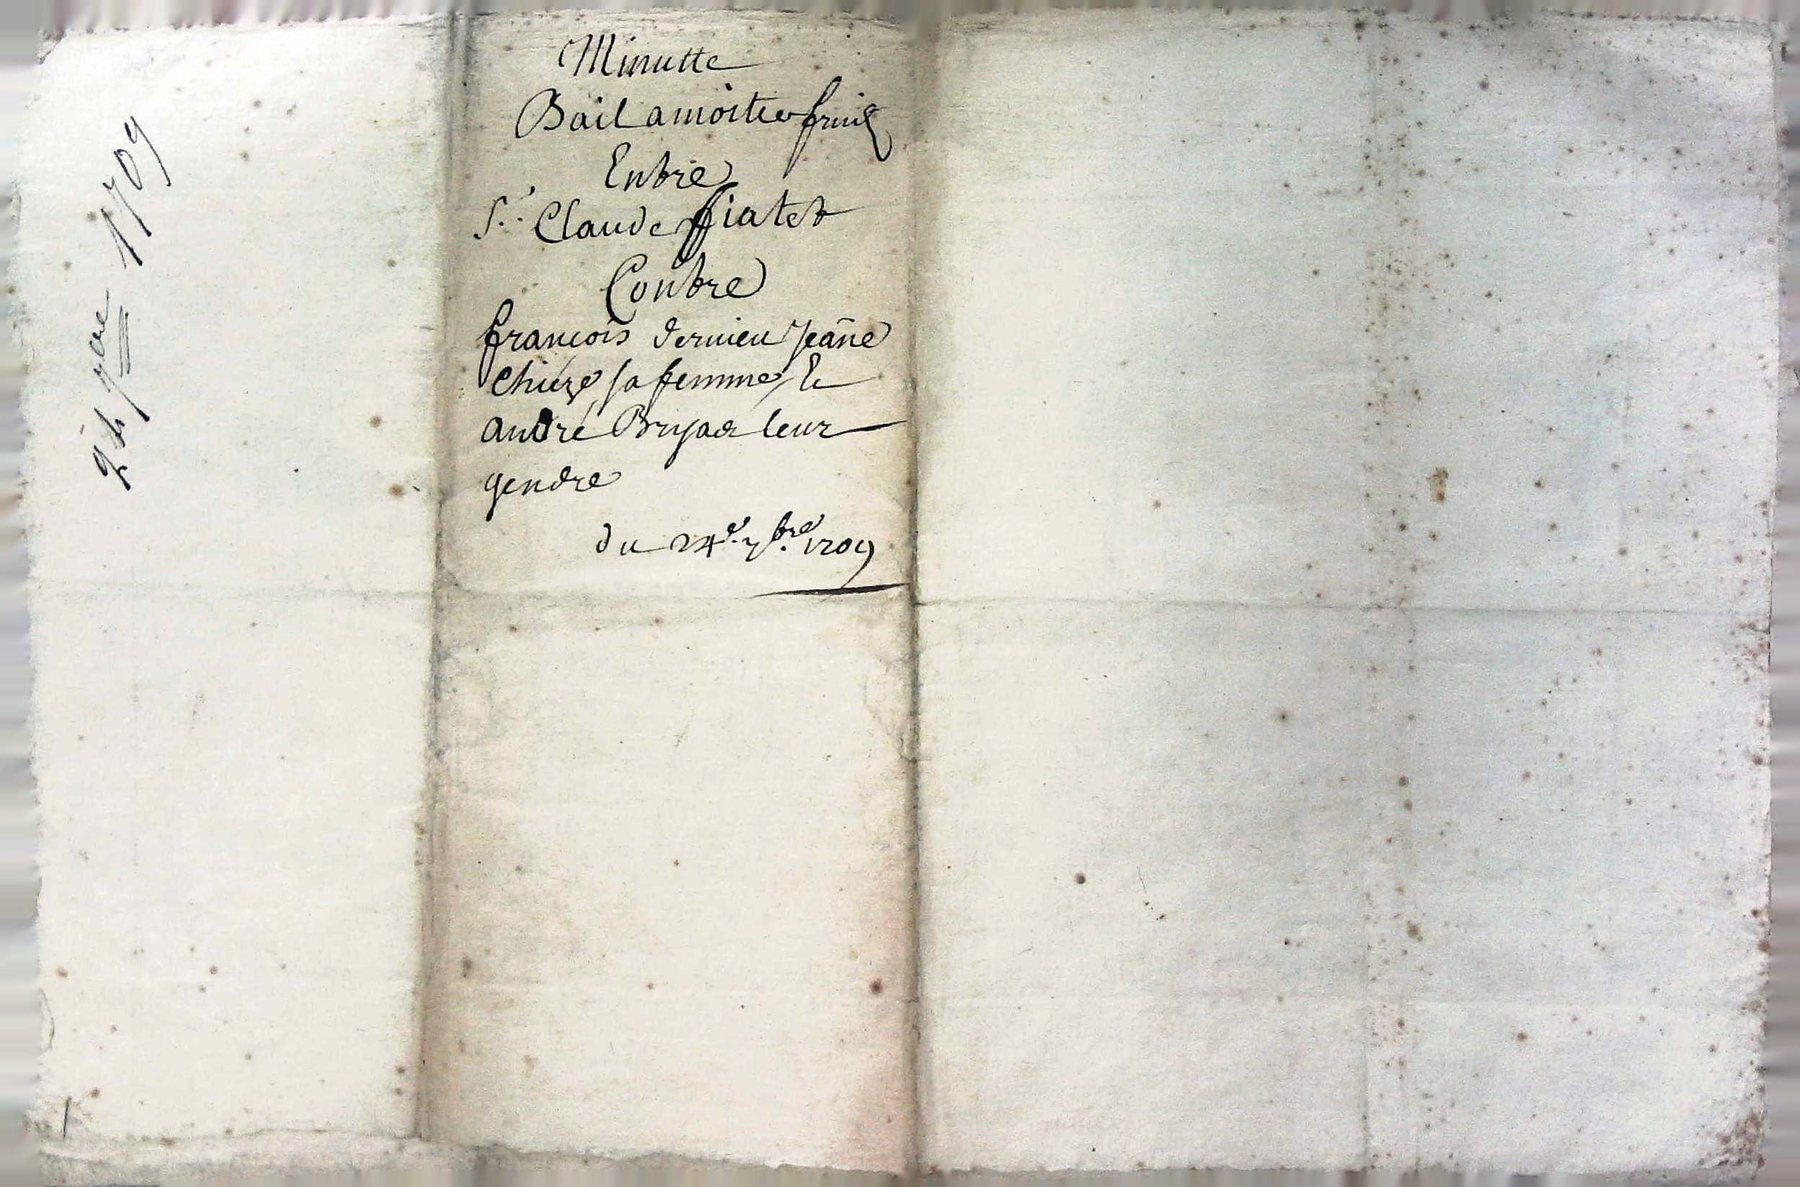 Minutte
Bail a moitié fruit
Entre
Sr. Claude ffiatet
Contre
françois dernieu Jeane
Chieze, sa femme, Et
andré Bryac leur
gendre
du 24e. 7bre. 1709
24 7bre 1709